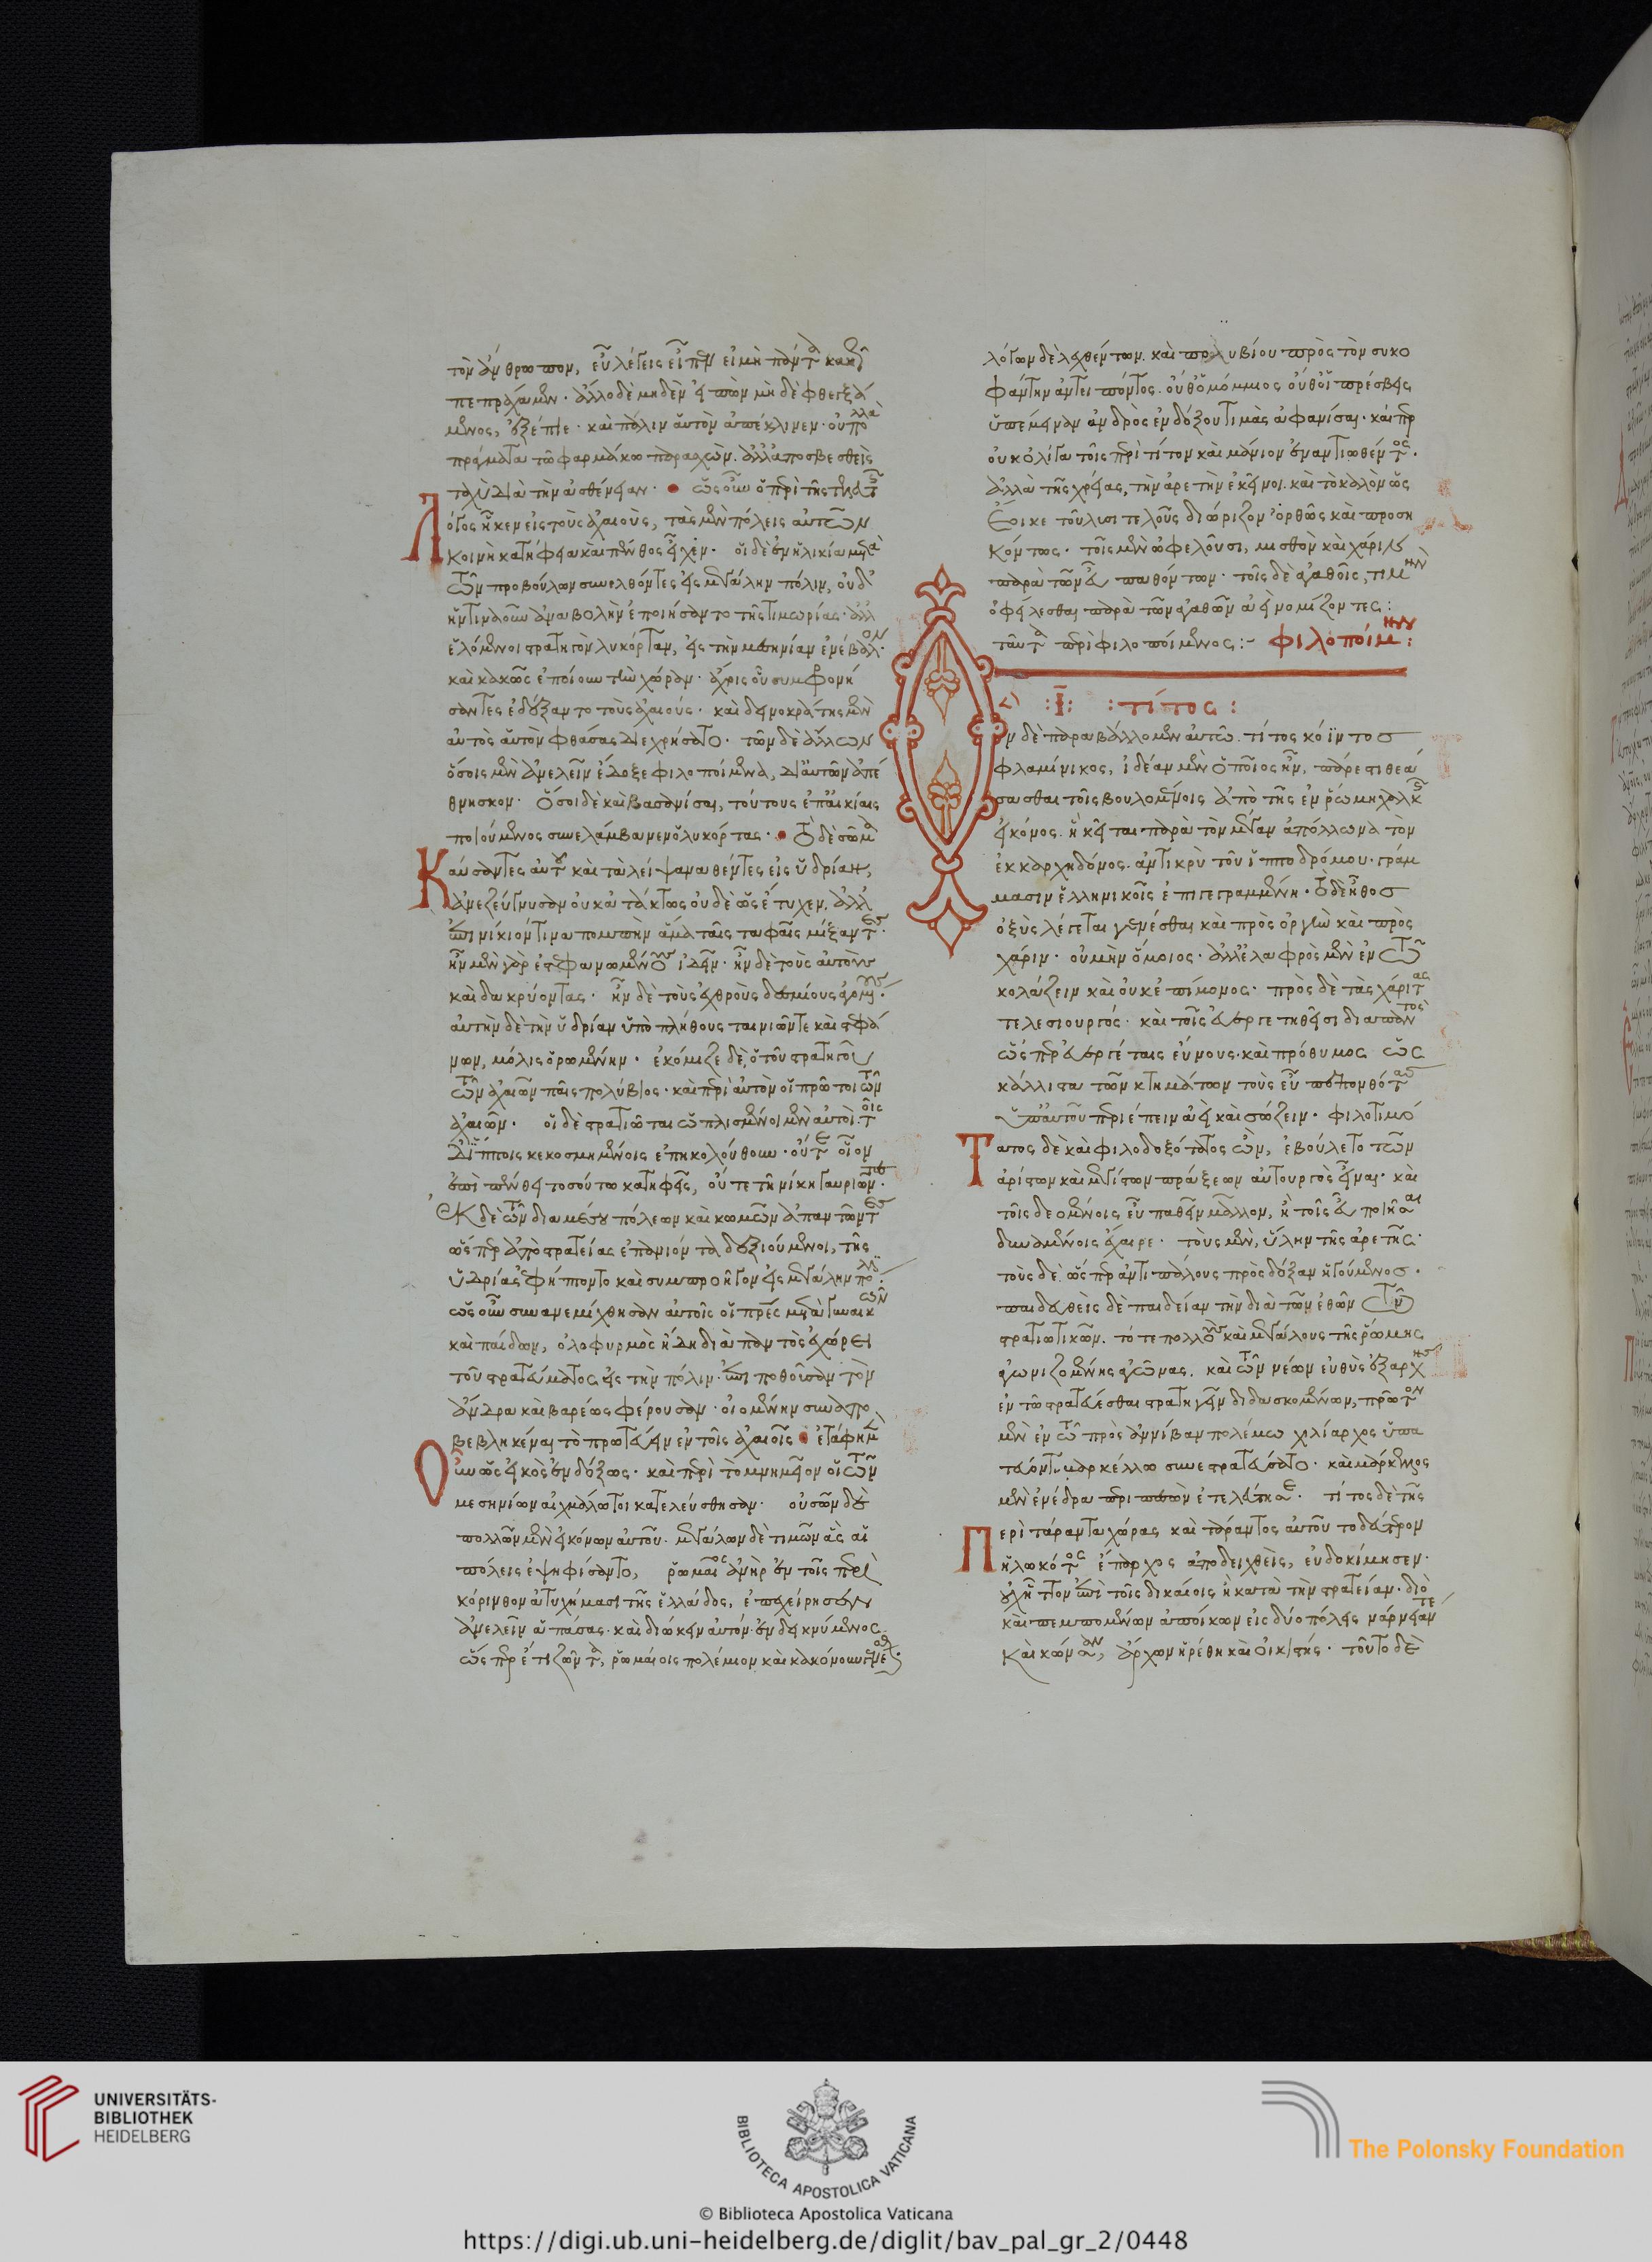 τὸν ἄνθρωπον, εὖ λέγεις εἶπεν εἰ μὴ πάντα κακῶς
πεπράχαμεν· ἄλλο δὲ μηδὲν εἰπὼν μηδὲ φθεγξά
μενος, ἐξέπιε· καὶ πάλιν αὑτὸν ἀπέκλινεν· οὐ πολλὰ
πράγματα τῶ φαρμάκω παρασχὼν. ἀλλ' ἀποσβεσθεὶς
ταχὺ διὰ τὴν ἀσθένειαν· ὡς οὖν ὁ περὶ τῆς τελευτῆς
λόγος ἧκεν εἰς τοὺς ἀχαιοὺς, τὰς μὲν πόλεις αὐτῶν
κοινὴ κατήφεια καὶ πένθος εἶχεν· οἱ δὲ ἐν ἡλικία μετὰ
τῶν προβούλων συνελθόντες εἰς μεγάλην πόλιν, οὐδ'
ἥντινα οὖν ἀναβολὴν ἐποιήσαντο τῆς τιμωρίας· ἀλλ'
ἑλόμενοι στρατηγὸν λυκόρταν, εἰς τὴν μεσηνίαν ἐνέβαλον·
καὶ κακῶς ἐποίουν τὴν χώραν· ἄχρις οὗ συμφρονή
σαντες ἐδέξαντο τοὺς ἀχαιούς· καὶ δεινοκράτης μὲν
αὐτὸς αὑτὸν φθάσας διεχρήσατο· τῶν δὲ ἄλλων
ὅσοις μὲν ἀνελεῖν ἔδοξε φιλοποίμενα, δι' αὑτῶν ἀπέ
θνησκον· ὅσοι δὲ καὶ βασανίσαι, τούτους ἐπ' αἰκίαις
ποιούμενος συνελάμβανεν ὁ λυκόρτας· τὸ δὲ σῶμα
καύσαντες αὐτοῦ καὶ τὰ λείψανα θέντες εἰς ὑδρίαν,
ἀνεζεύγνυσαν οὐκ ἀτάκτως οὐδὲ ὡς ἔτυχεν, ἀλλ'
ἐπινίκιόν τινα πομπὴν ἅμα ταῖς ταφαῖς μίξαντες·
ἦν μὲν γὰρ ἐστεφανωμένους ἰδεῖν· ἦν δὲ τοὺς αὐτοὺς
καὶ δακρύοντας· ἦν δὲ τοὺς ἐχθροὺς δεσμίους ἀγομένους·
αὐτὴν δὲ τὴν ὑδρίαν ὑπὸ πλήθους ταινιῶν τε καὶ στεφά
νων, μόλις ὁρωμένην· ἐκόμιζε δὲ, ὁ τοῦ στρατηγοῦ
τῶν ἀχαιῶν παῖς πολύβιος· καὶ περὶ αὐτὸν οἱ πρῶτοι τῶν
ἀχαιῶν· οἱ δὲ στρατιῶται ὡπλισμένοι μὲν αὐτοὶ· τοῖς
δὲ ἵπποις κεκοσμημένοις ἐπηκολούθουν· οὔτε οἷον
ἐπὶ πένθει τοσούτω κατηφεῖς, οὔτε τῆ νίκη γαυριῶντες·
ἐκ δὲ τῶν διὰ μέσου πόλεων καὶ κωμῶν ἀπαντῶντες
ὥσπερ ἀπὸ στρατείας ἐπανιόντα δεξιούμενοι, τῆς
ὑδρίας ἐφήπτοντο καὶ συμπροῆγον εἰς μεγάλην πόλιν·
ὡς οὖν συνανεμίχθησαν αὐτοῖς οἱ πρεσβύτεροι μετὰ γυναικῶν
καὶ παίδων, ὀλοφυρμὸς ἤδη διὰ παντὸς ἐχώρει
τοῦ στρατεύματος εἰς τὴν πόλιν· ἐπιποθοῦσαν τὸν
ἄνδρα καὶ βαρέως φέρουσαν· οἰομένην συναπο
βεβληκέναι τὸ πρωτεύειν ἐν τοῖς ἀχαιοῖς ἐτάφη μὲν
οὖν ὡς εἰκὸς ἐνδόξως· καὶ περὶ τὸ μνημεῖον οἱ τῶν
μεσηνίων αἰχμάλωτοι κατελεύσθησαν· οὐσῶν δὲ
πολλῶν μὲν εἰκόνων αὐτοῦ. μεγάλων δὲ τιμῶν ἃς αἱ
πόλεις ἐψηφίσαντο, ῥωμαῖος ἀνὴρ ἐν τοῖς περὶ
κόρινθον ἀτυχήμασι τῆς ἑλλάδος, ἐπεχείρησεν
ἀνελεῖν ἁπάσας· καὶ διώκειν αὐτόν· ἐνδεικνύμενος
ὥσπερ ἔτι ζῶντα, ῥωμαίοις πολέμιον καὶ κακόνουν γενέσθαι·
λόγων δὲ λεχθέντων. καὶ πολυβίου πρὸς τὸν συκο
φάντην ἀντειπόντος. οὔθ' ὁ μόμμιος οὔθ' οἱ πρέσβεις
ὑπέμειναν ἀνδρὸς ἐνδόξου τιμὰς ἀφανίσαι· καίπερ
οὐκ ὀλίγα τοῖς περὶ τίτον καὶ μάνιον ἐναντιωθέντος·
ἀλλὰ τῆς χρείας, τὴν ἀρετὴν ἐκεῖνοι. καὶ τὸ καλὸν ὡς
ἔοικε τοῦ λυσιτελοῦς διώριζον· ὀρθῶς καὶ προση
κόντως· τοῖς μὲν ὠφελοῦσι, μισθὸν καὶ χάριν
παρὰ τῶν εὖ παθόντων· τοῖς δὲ ἀγαθοῖς, τιμὴν
ὀφείλεσθαι παρὰ τῶν ἀγαθῶν ἀεὶ νομίζοντες:
ταῦτα περὶ φιλοποίμενος:- φιλοποίμην:
:Ι: :τίτος:
Ὃν δὲ παραβάλλομεν αὐτῶ. τίτος κόϊντος
φλαμίνικος, ἰδέαν μὲν ὁποῖος ἦν, πάρεστι θεά
σασθαι τοῖς βουλομένοις ἀπὸ τῆς ἐν ῥώμη χαλκῆς
εἰκόνος. ἣ κεῖται παρὰ τὸν μέγαν ἀπόλλωνα τὸν
ἐκ καρχηδόνος. ἀντικρὺ τοῦ ἱπποδρόμου· γράμ
μασιν ἑλληνικοῖς ἐπιγεγραμμένη· τὸ δὲ ἦθος
ὀξὺς λέγεται γενέσθαι καὶ πρὸς ὀργὴν καὶ πρὸς
χάριν· οὐ μὴν ὅμοιος· ἀλλ' ἐλαφρὸς μὲν ἐν τῶ
κολάζειν καὶ οὐκ ἐπίμονος· πρὸς δὲ τὰς χάριτας
τελεσιουργός· καὶ τοῖς εὐεργετηθεῖσι διαπαντὸς
ὥσπερ εὐεργέταις εὔνους· καὶ πρόθυμος ὡς
κάλλιστα τῶν κτημάτων τοὺς εὖ πεπονθότας
ὑπ' αὐτοῦ περιέπειν ἀεὶ καὶ σώζειν· φιλοτιμό
τατος δὲ καὶ φιλοδοξότατος ὢν, ἐβούλετο τῶν
ἀρίστων καὶ μεγίστων πράξεων αὐτουργὸς εἶναι· καὶ
τοῖς δεομένοις εὖ παθεῖν μᾶλλον, ἢ τοῖς εὖ ποιῆσαι
δυναμένοις ἔχαιρε· τοὺς μὲν, ὕλην τῆς ἀρετῆς·
τοὺς δὲ, ὥσπερ ἀντιπάλους πρὸς δόξαν ἡγούμενος·
παιδευθεὶς δὲ παιδείαν τὴν διὰ τῶν ἐθῶν τῶν
στρατιωτικῶν. τότε πολλοὺς καὶ μεγάλους τῆς ῥώμης
ἀγωνιζομένης ἀγῶνας. καὶ τῶν νέων εὐθὺς ἐξ ἀρχῆς
ἐν τῶ στρατεύεσθαι στρατηγεῖν διδασκομένων, πρῶτον
μὲν ἐν τῶ πρὸς ἀννίβαν πολέμω χιλίαρχος ὑπα
τεύοντι μαρκέλλω συνεστρατεύσατο· καὶ μάρκελλος
μὲν ἐνέδρα περιπεσὼν ἐτελεύτησε· τίτος δὲ τῆς
περὶ τάραντα χώρας καὶ τάραντος αὐτοῦ τὸ δεύτερον
ἡλωκότος ἔπαρχος ἀποδειχθεὶς, εὐδοκίμησεν·
οὐχ ἧττον ἐπὶ τοῖς δικαίοις ἢ κατὰ τὴν στρατείαν· διὸ
καὶ πεμπομένων ἀποίκων εἰς δύο πόλεις νάρνειάν τε
καὶ κώνσαν, ἄρχων ἡρέθη καὶ οἰκιστής· τοῦτο δὲ
UNIVERSITÄTS-
BIBLIOTHEK
HEIDELBERG
BIBLIOTECA APOSTOLICA VATICANA
The Polonsky Foundation
© Biblioteca Apostolica Vaticana
https://digi.ub.uni-heidelberg.de/diglit/bav_pal_gr_2/0448